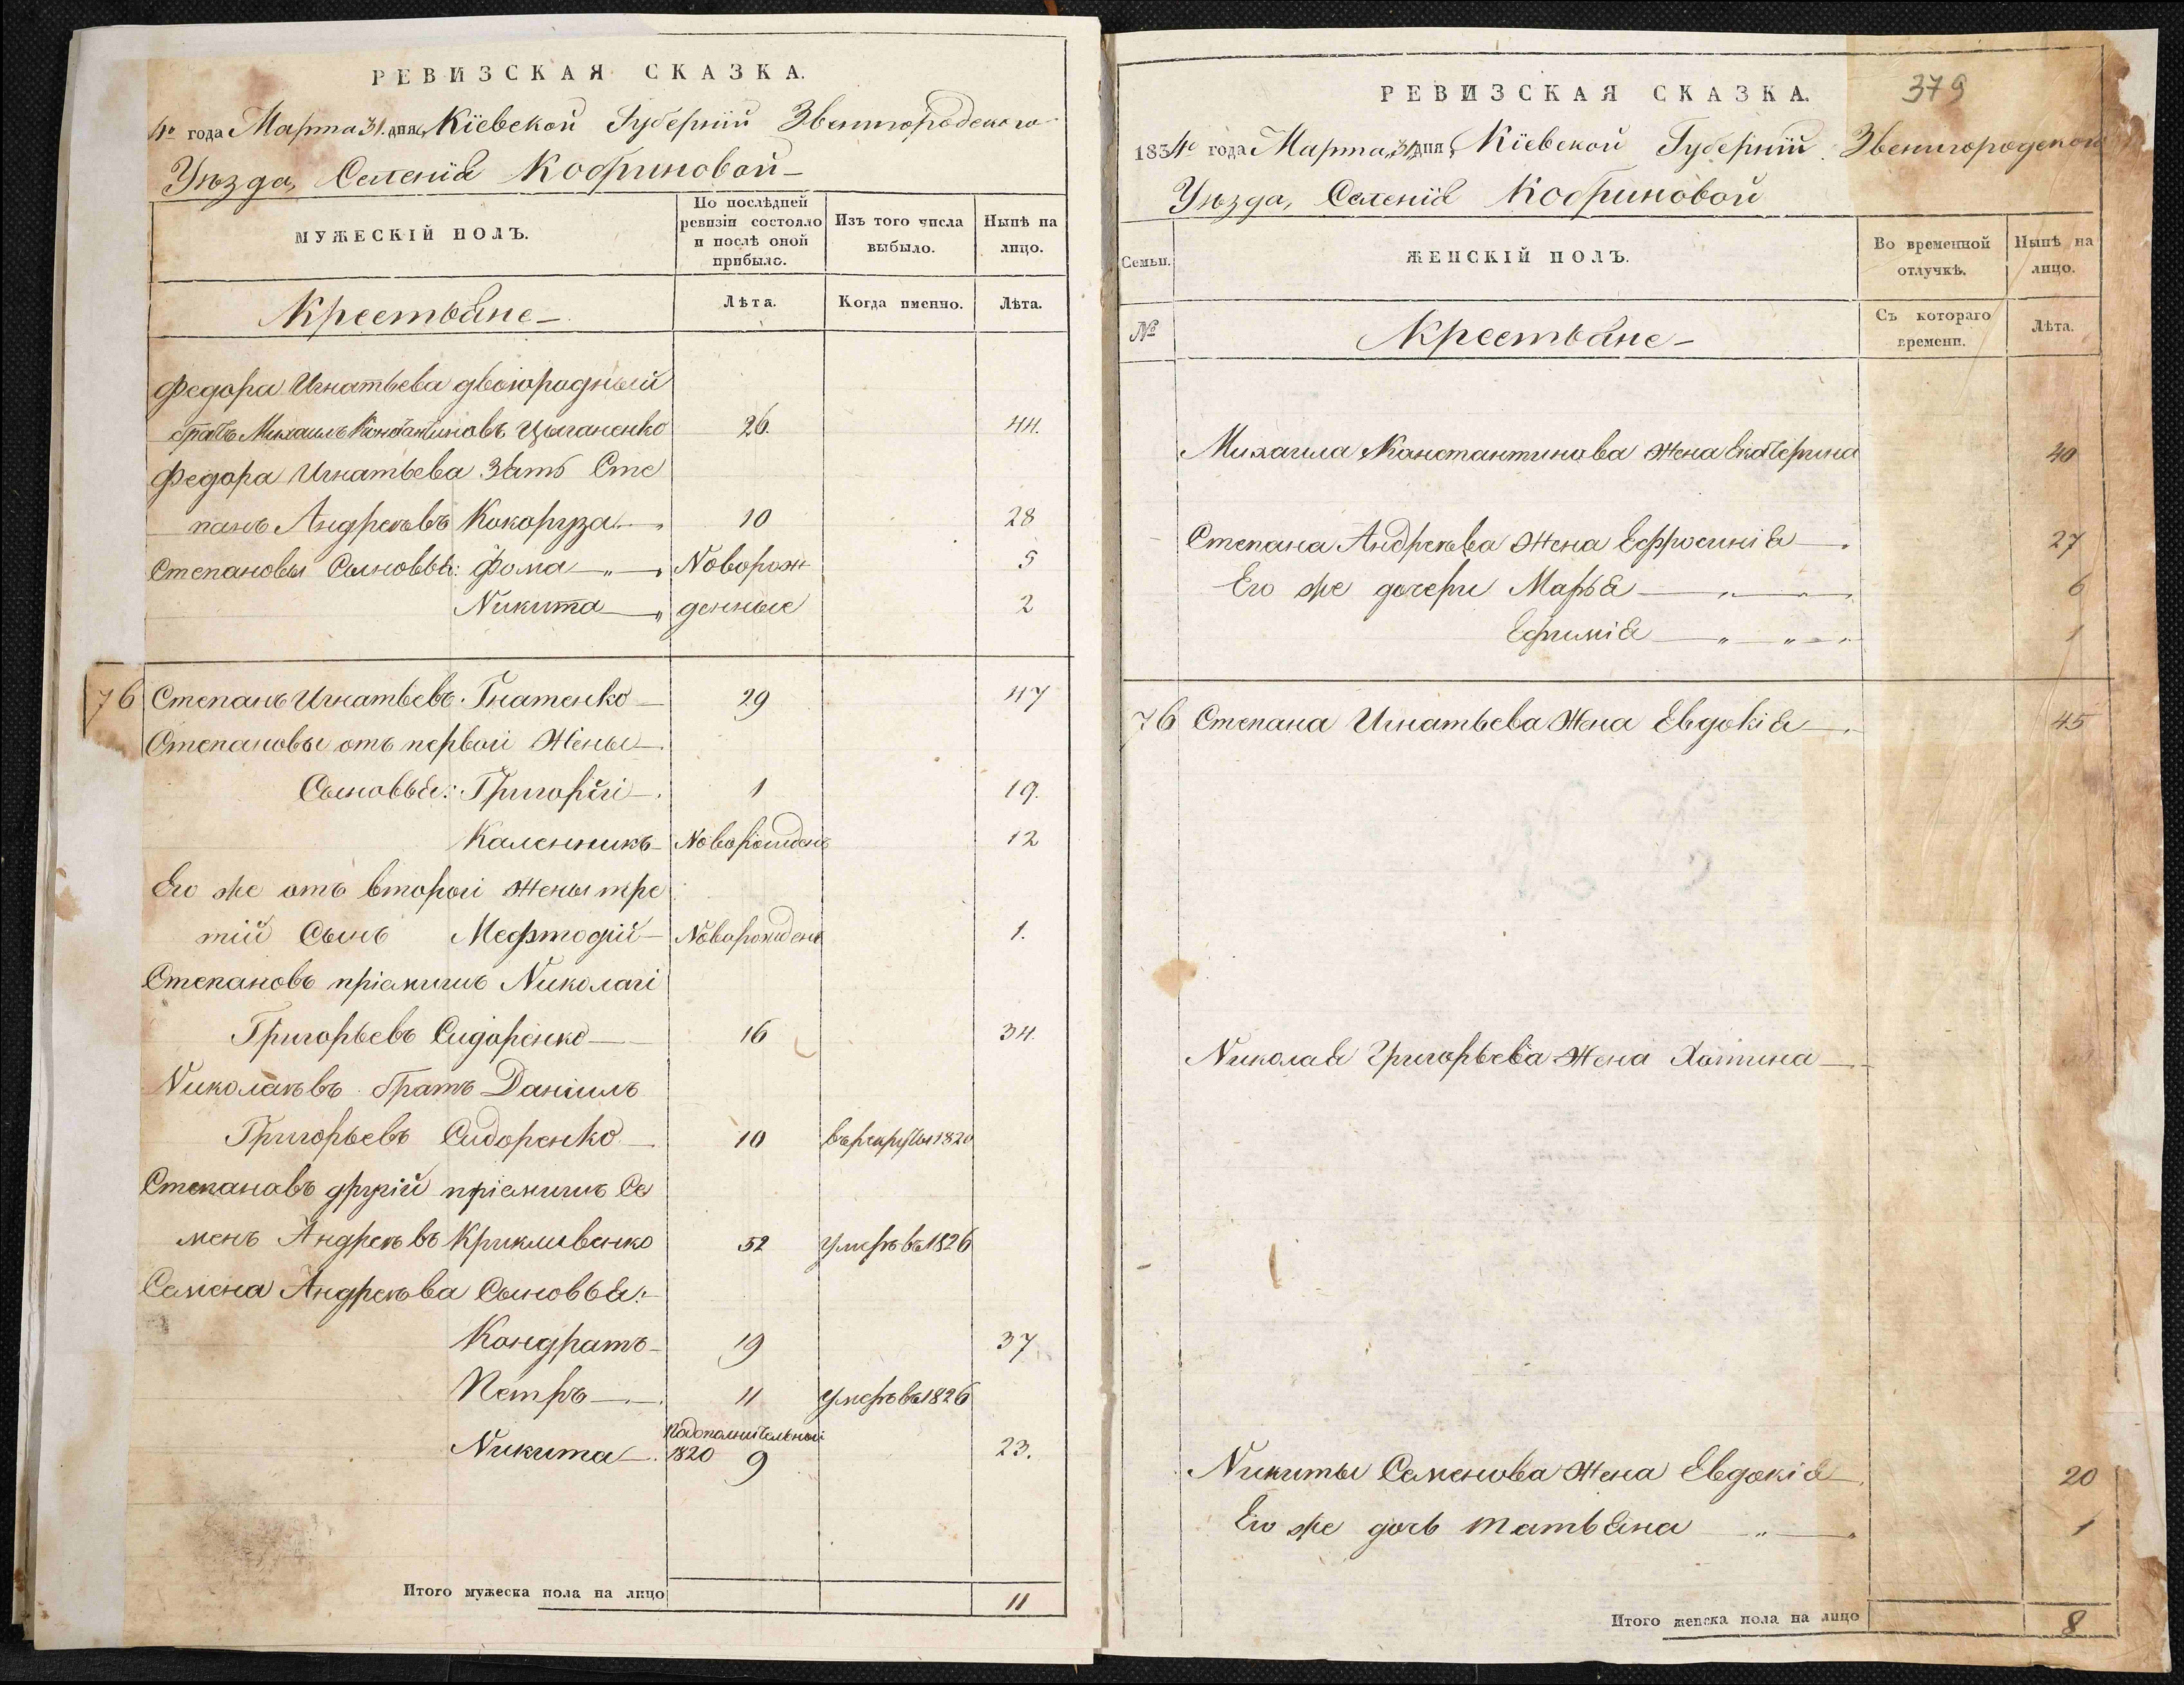 РЕВИЗСКАЯ СКАЗКА.
4го года Марта 31. дня, Кіевской Губерніи Звенигородскаго
Уѣзда, Селенія Кобриновой
МУЖЕСКІЙ ПОЛЪ.
По послѣдней ревизіи состояло и послѣ оной прибыло.
Изъ того числа выбыло.
Нынѣ на лицо.
Лѣта.
Когда именно.
Лѣта.
Крестьяне
Федора Игнатьева двоюродный
братъ Михаилъ Константиновъ Цыганенко 26. 44.
Федора Игнатьева зять Сте
панъ Андреевъ Кокоргуза 10 28
Степановы Сыновья: Фома Новорож 5
Никита денные 2
76 Степанъ Игнатьевъ Гнатенко 29 47
Степановы отъ первой жены
Сыновья: Григорій 1 19.
Каленникъ Новорожденъ 12
Его же отъ второй жены тре
тій Сынъ Мефтодій Новорожденъ 1.
Степановъ пріемышъ Николай
Григорьевъ Сидоренко 16 34.
Николаевъ братъ Даніилъ
Григорьевъ Сидоренко 10 въ рекруты 1820
Степановъ другій пріемышъ Се
менъ Андреевъ Крикливенко 52 умеръ въ 1826
Семена Андреева Сыновья:
Кондратъ 19 37
Петръ 11 умеръ въ 1826
Никита по дополнительной 1820 9 23.
Итого мужеска пола на лицо 11
РЕВИЗСКАЯ СКАЗКА. 379
1834го года Марта 31 дня, Кіевской Губерніи Звенигородской
Уѣзда, Селенія Кобриновой
Семьи.
ЖЕНСКІЙ ПОЛЪ.
Во временной отлучкѣ.
Нынѣ на лицо.
№
Крестьяне
Съ котораго времени.
Лѣта.
Михаила Константинова жена Екатерина 40
Степана Андреева жена Ефросинія 27
Его же дочери Марья 6
Ефимія 1
76 Степана Игнатьева жена Евдокія 45
Николая Григорьева жена Хотина
Никиты Семенова жена Евдокія 20
Его же дочь Татьяна 1
Итого женска пола на лицо 8